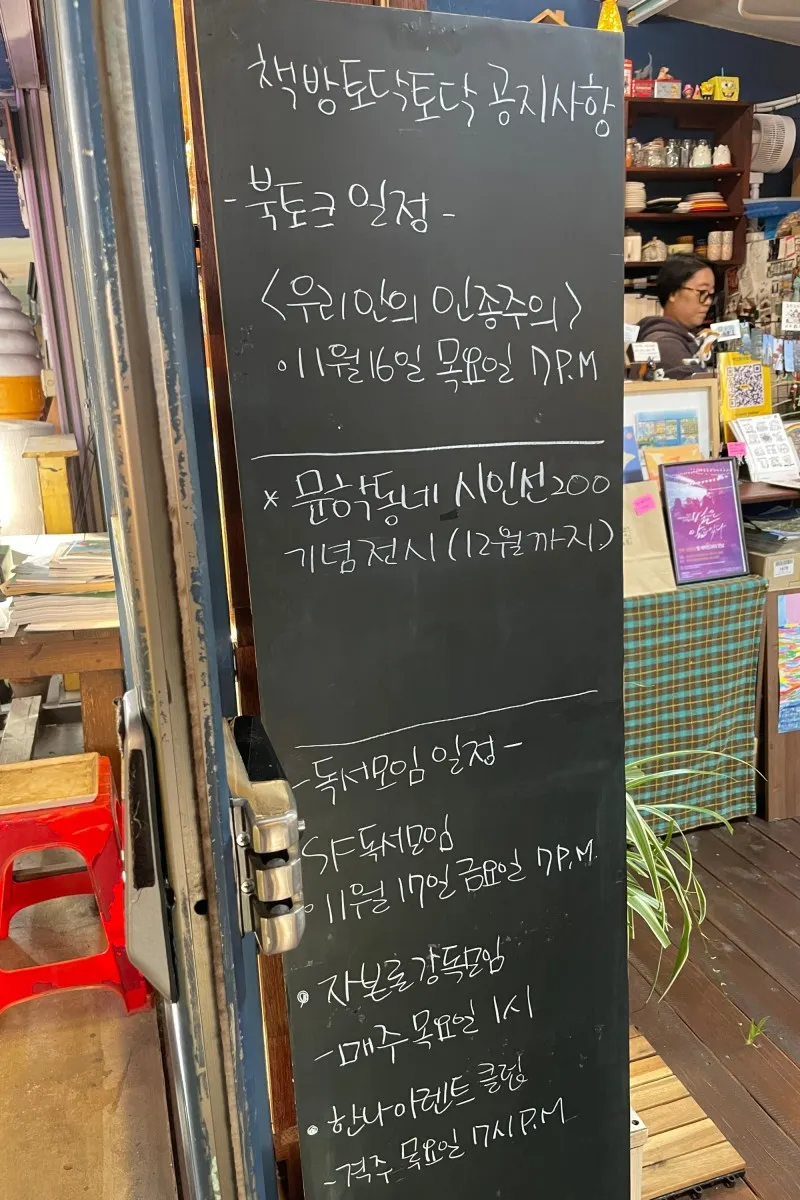 책방토닥토닥 공지사항
-북토크 일정-
<우리안의 인종주의>
· 11월 16일 목요일 7P.M
* 문학동네 시인선 200
기념전시 (12월까지)
-독서모임 일정-
SF독서모임
· 11월 17일 금요일 7P.M
· 자본론강독모임
-매주 목요일 1시
· 한나아렌트 클럽
-격주 목요일 7시P.M